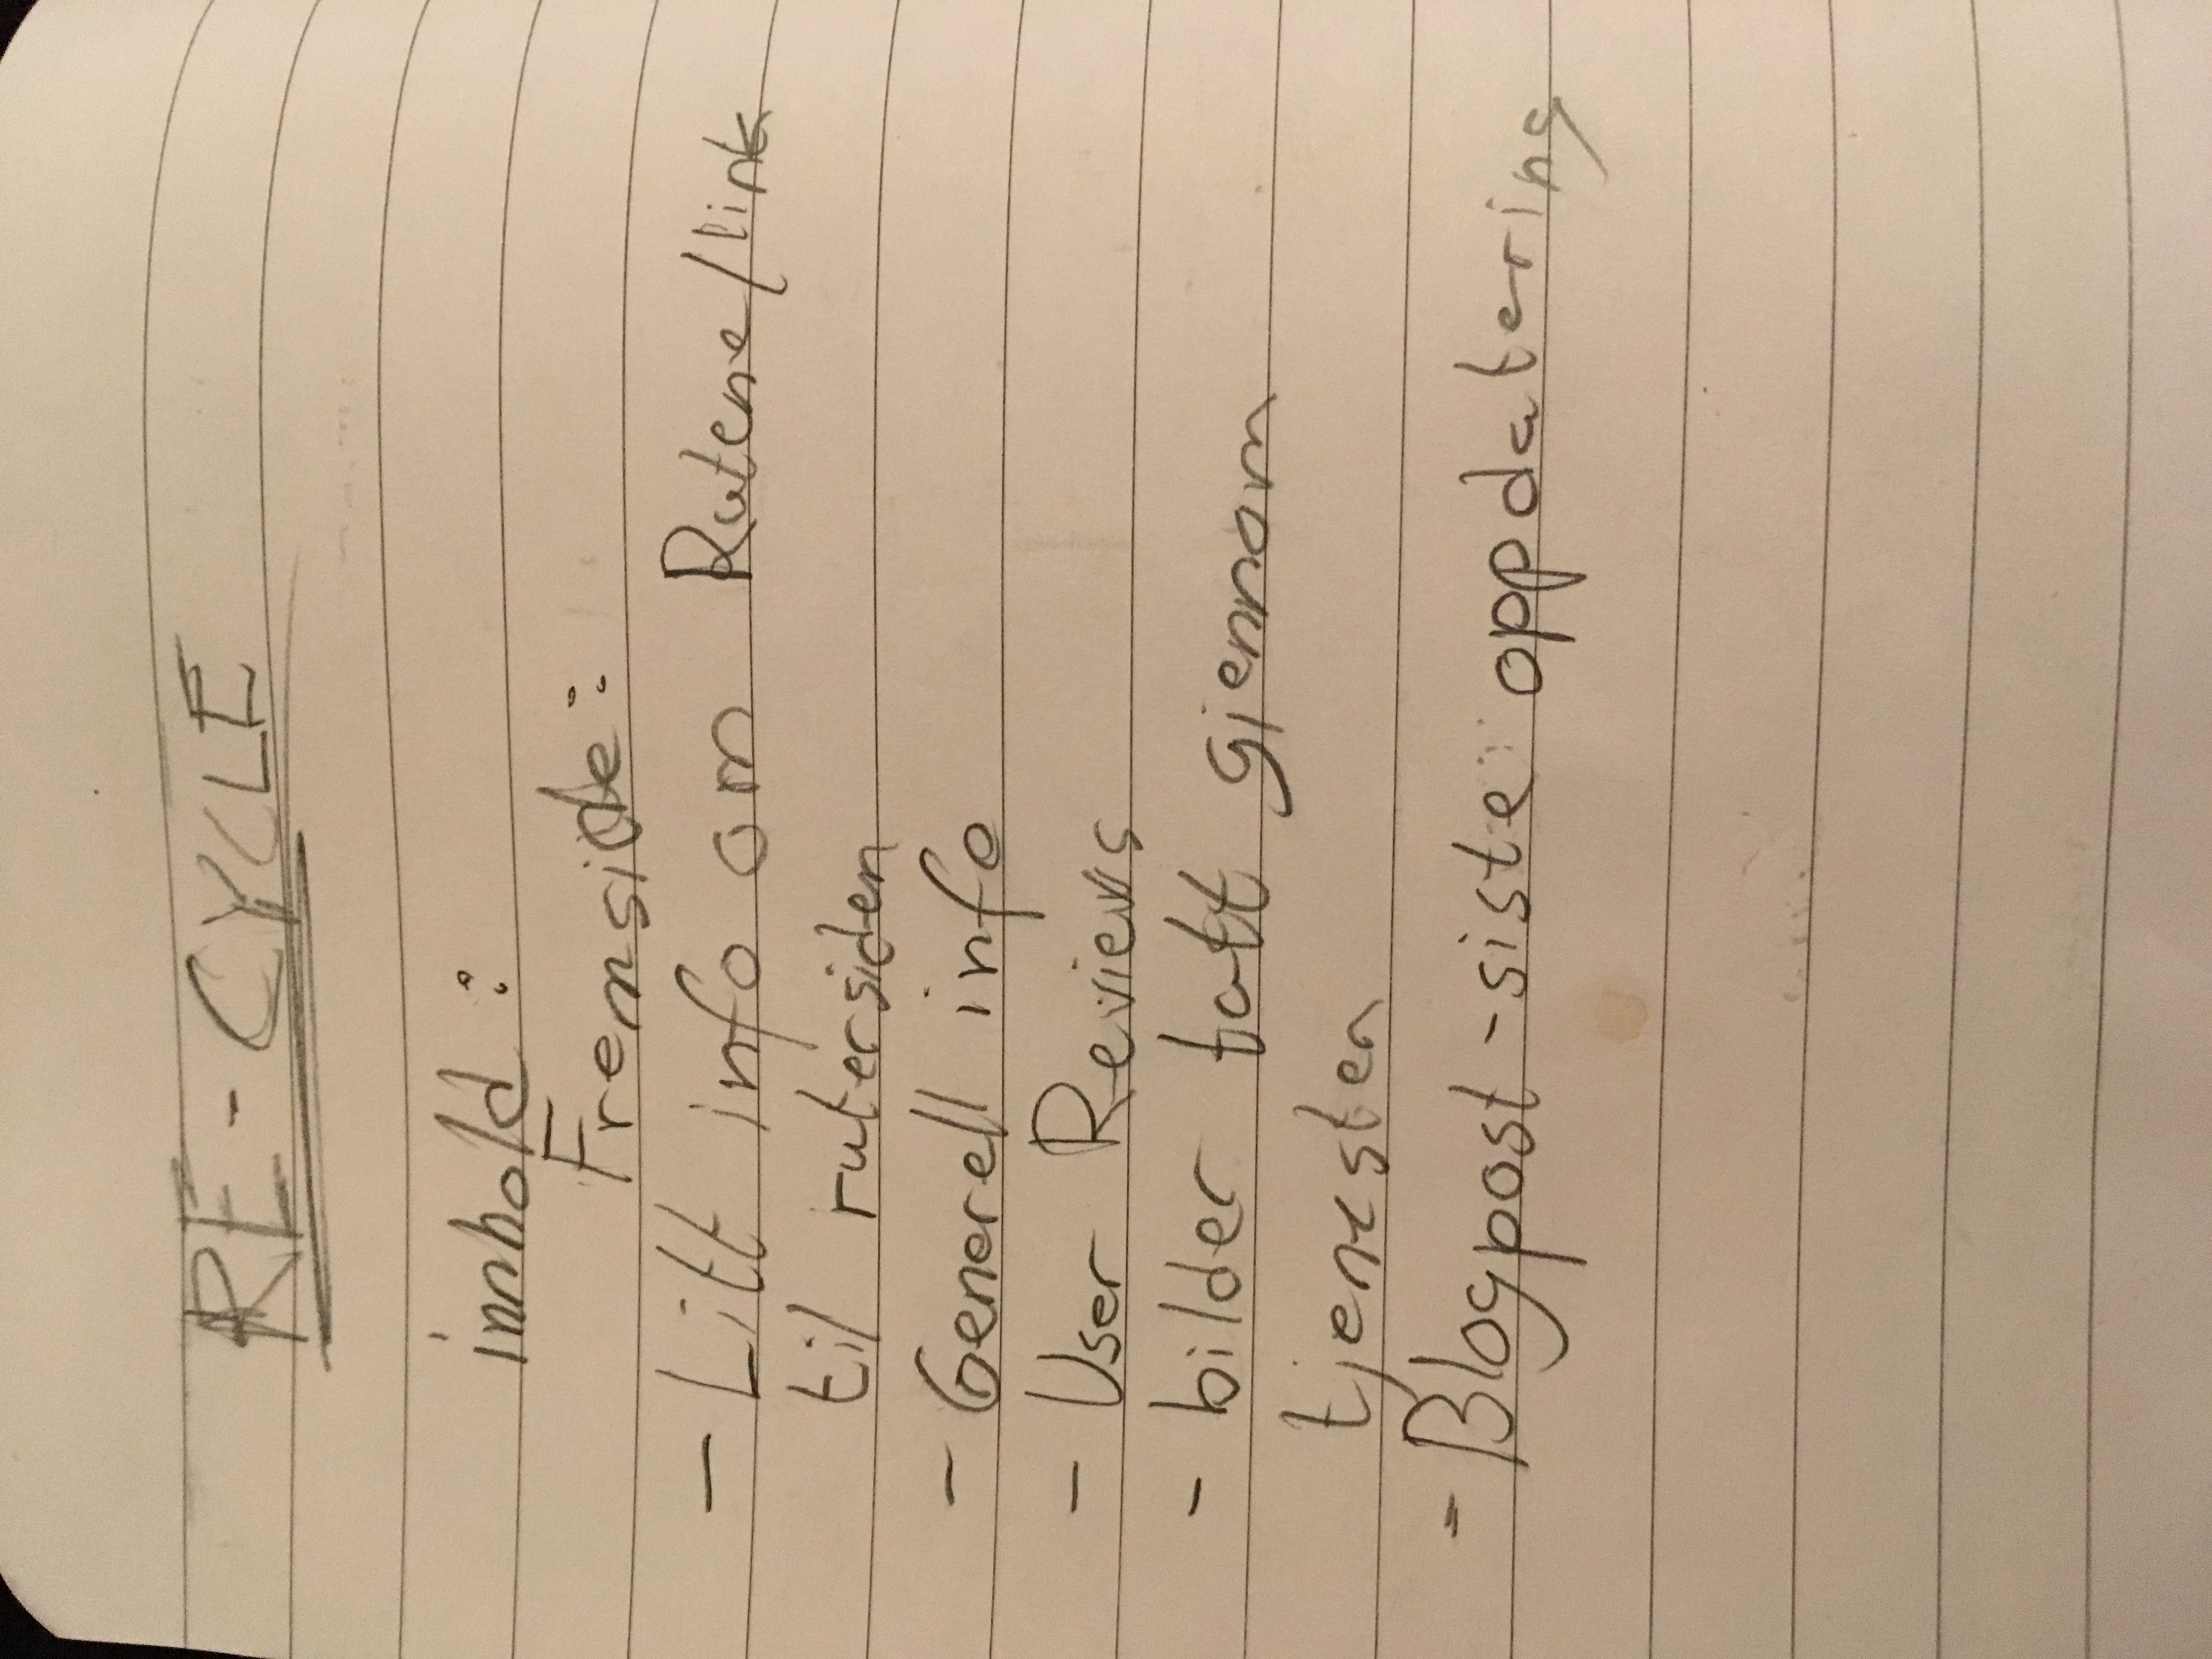 RE-CYCLE
innhold:
Fremside:
- Litt info om Rutene/link
til rutersiden
- Generell info
- User Reviews
- bilder tatt gjennom
tjenesten
- Blogpost - siste oppdatering